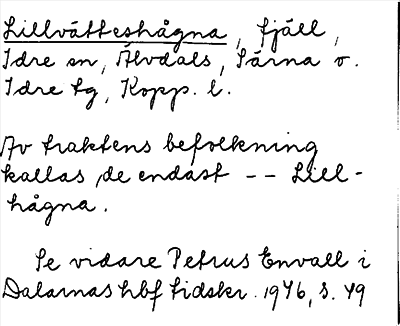 Lillvätteshågna, fjäll,
Idre sn, Älvdals, Särna o.
Idre tg, Kopp. l.
Av traktens befolkning
kallas de endast -- Lill-
hågna.
Se vidare Petrus Envall i
Dalarnas hbf tidskr. 1946, s. 49